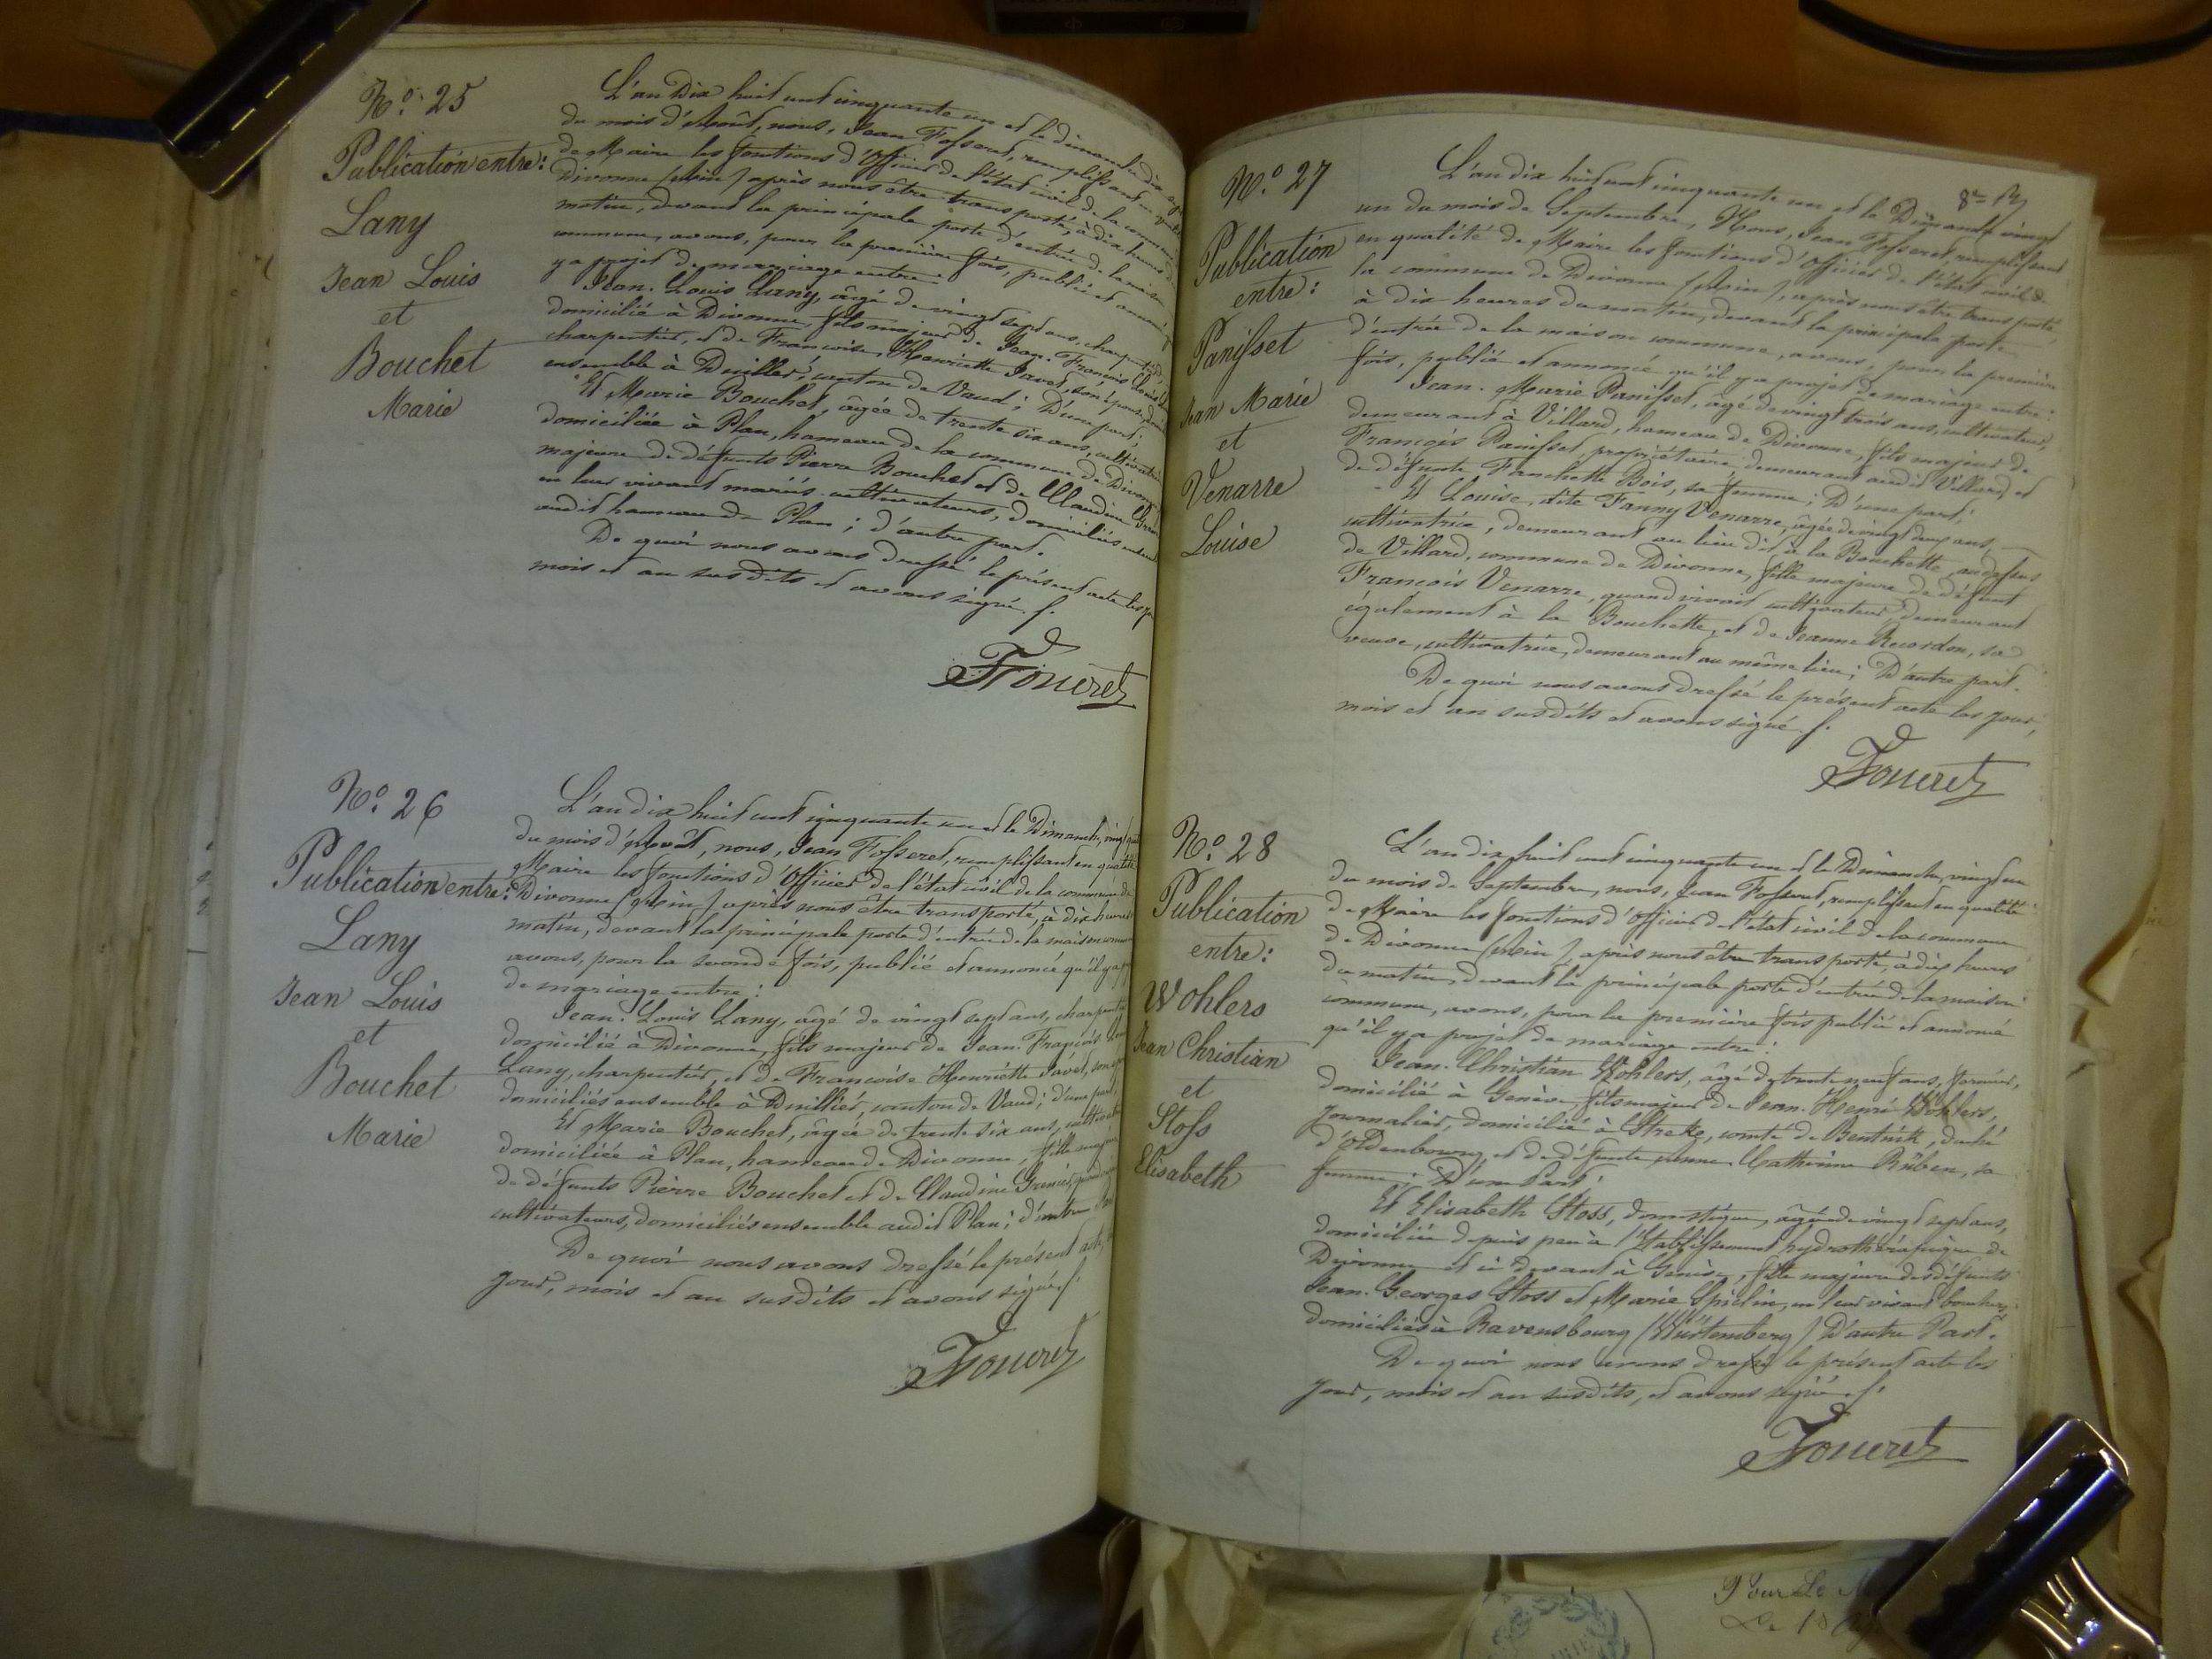 N.o 25
Publication entre:
Lany
Jean Louis
et
Bouchet
Marie
L'an Dix huit cent cinquante un et le dimanche dix sept
du mois d'Août, nous, Jean Fosseret, remplissant en qualité
de Maire les fontions d'Officier de l'état civil de la commune de
Divonne (Ain) après nous être transporté, à dix heures du
matin, devant la principale porte d'entrée de la maison
commune, avons, pour la première fois, publié et annoncé
y a projet de mariage entre:
Jean. Louis Lany, âgé de vingt sept ans, charpentier,
domicilié à Divonne, fils majeur de Jean. François Louis
charpentier, et de Francoise Henriette Favel, son épouse,
ensemble à Duillier, canton de Vaud; D'une part;
Et Marie Bouchet, âgée de trente six ans, cultivatrice
domiciliée à Plan, hameau de la commune de Divonne
majeure de défunts Pierre Bouchet et de Claudine
en leur vivant mariés cultivateurs, domiciliés
audit hameau de Plan; d'autre part.
De quoi nous avons dressé le présent acte les jour
mois et an susdits et avons signé. /.
Fosseret
N.o 26
Publication entre:
Lany
Jean Louis
et
Bouchet
Marie
L'an dix huit cent cinquante un et le Dimanche, vingt
du mois d'Août, nous, Jean Fosseret, remplissant en qualité
Maire les fonctions d'Officier de l'état civil de la commune de
Divonne (Ain) après nous être transporté, à dix heures
matin, devant la principale porte d'entrée de la maison commune
avons, pour la seconde fois, publié et annoncé qu'il y a
de mariage entre:
Jean. Louis Lany, âgé de vingt sept ans, charpentier
domicilié à Divonne, fils majeur de Jean. François
Lany, charpentier, et de Francoise Henriette Favel, son
domiciliés ensemble à Duillier, canton de Vaud; d'une part;
Et Marie Bouchet, âgée de trente six ans, cultivatrice
domiciliée à Plan, hameau de Divonne, fille majeure
de défunts Pierre Bouchet et de Claudine Grenier,
cultivateurs, domiciliés ensemble audit Plan; d'autre
De quoi nous avons dressé le présent acte,
jour, mois et an susdits et avons signé /.
Fosseret
8e
N.o 27
Publication
entre:
Panisset
Jean Marie
et
Venarre
Louise
L'an dix huit cent cinquante un et le Dimanche vingt
un du mois de Septembre, Nous, Jean Fosseret, remplissant
en qualité de Maire les fonctions d'Officier de l'état civil de
la commune de Divonne (Ain), après nous être transporté,
à dix heures du matin, devant la principale porte
d'entrée de la maison commune, avons, pour la première
fois, publié et annoncé qu'il y a projet de mariage entre:
Jean. Marie Panisset, âgé de vingt trois ans, cultivateur,
demeurant à Villard, hameau de Divonne, fils majeur de
François Panisset, propriétaire, demeurant audit Villard, et
de défunte Franchette Bois, sa femme; D'une part;
Et Louise, dite Fanny Venarre, âgée de vingt deux ans,
cultivatrice, demeurant au lieu dit à la Bouchette, au dessus
de Villard, commune de Divonne, fille majeure de défunt
François Venarre, quand vivait cultivateur, demeurant
également à la Bouchette, et de Jeanne Recordon, sa
veuve, cultivatrice, demeurant au même lieu; D'autre part.
De quoi nous avons dressé le présent acte les jour,
mois et an susdits et avons signé. /.
Fosseret
N.o 28
Publication
entre:
Wohlers
Jean Christian
et
Stoss
Elisabeth
L'an dix huit cent cinquante un et le Dimanche, vingt un
du mois de Septembre, nous, Jean Fosseret, remplissant en qualité
de Maire les fonctions d'Officier de l'état civil de la commune
de Divonne (Ain), après nous être transporté, à dix heures
du matin, devant la principale porte d'entrée de la maison
commune, avons, pour la première fois publié et annoncé
qu'il y a projet de mariage entre:
Jean. Christian Wohlers, âgé de trente neuf ans, fermier,
domicilié à Genève, fils majeur de Jean. Henri Wohlers,
journalier, domicilié à Streke, comté de Bentink, duché
d'Oldenbourg, et de défunte Anne Catherine Rüben, sa
femme; D'une Part;
Et Elisabeth Stoss, domestique, âgée de vingt sept ans,
domiciliée depuis peu à l'Etablissement hydrothérapique de
Divonne et ci devant à Genève, fille majeure des défunts
Jean. Georges Stoss et Marie Spielin, en leur vivant bouchers,
domiciliés à Ravensbourg (Würtemberg) D'autre Part.
De quoi nous avons dressé le présent acte les
jour, mois et an susdits, et avons signé. /.
Fosseret
Pour Le